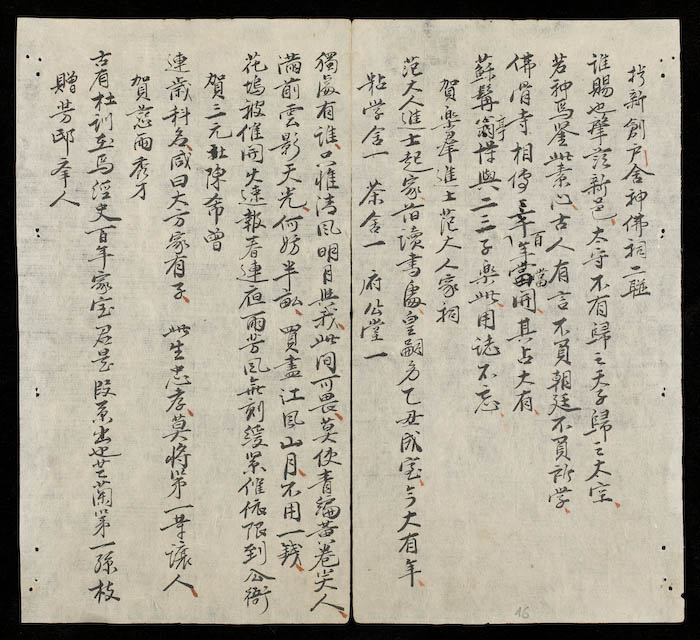 拧新創户舍神佛祠二聯
誰賜也肇芸新邑太守不有歸之天子歸之太宗
若神馬鑒此素心古人有言不負朝廷不負所学
佛骨寺相傳三百年當開其占大有
蘇髯翁亭謀與二三子樂此用誌不忘
賀樂羣進士范大人家祠
范大人進士起家旧讀書處皇嗣方乙丑成室今大有年
點学舍一 茶舍一 府公堂一
獨處有誰只惟清風明月與我此间可畏莫使青編黄卷笑人
滿前雲影天光何妨半畝 買盡江風山月不用一錢
花塢被催開火速報春連夜雨芳风無刻緩緊催依限到公衙
賀三元社陳希曾
連歲科名咸曰大万家有子 此生忠孝莫將第一等讓人
賀慈雨秀才
古有杜訓在焉經史百年家宝君是段原出也芝蘭第一孫枝
贈芳邸举人
16